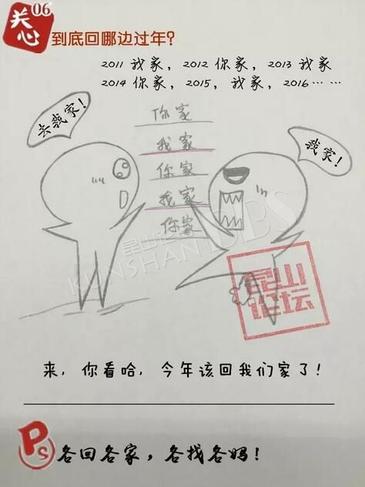 关心
06
到底回哪边过年?
2011 我家，2012 你家，2013 我家
2014 你家，2015，我家，2016……
去我家!
我家!
你家
我家
你家
我家
你家
昆山论坛
KUNSHAN BBS
昆山
论坛
来，你看哈，今年该回我们家了!
Ps
各回各家，各找各妈!